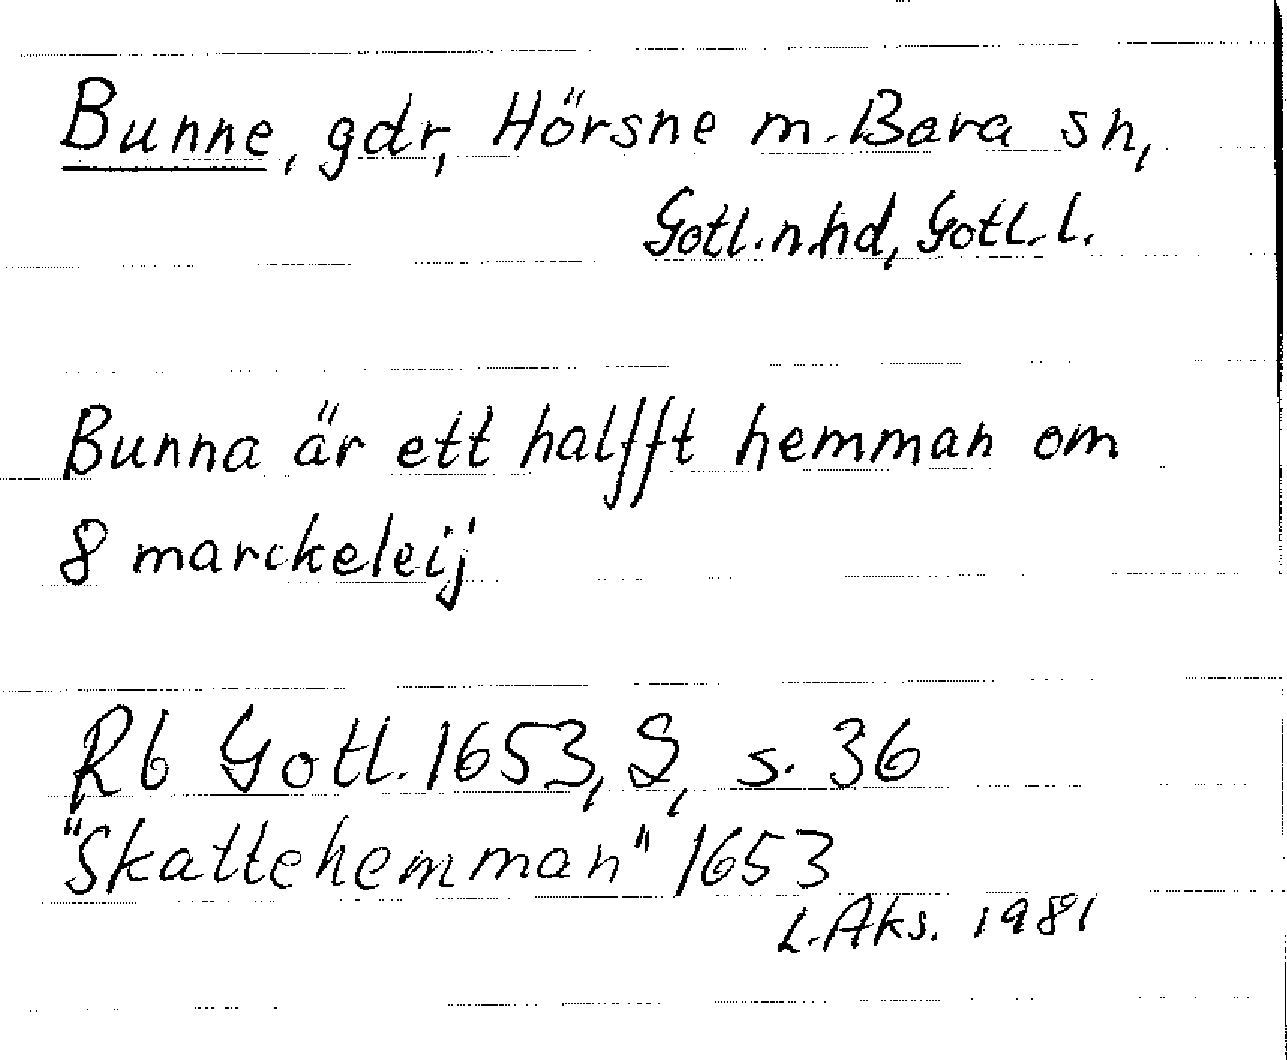 Bunne, gdr, Hörsne m. Bara sn,
Gotl. n. hd, Gotl. l.
Bunna är ett halfft hemman om
8 marckeleij
Rb Gotl. 1653, S, s. 36
"Skattehemman" 1653
L. Aks. 1981